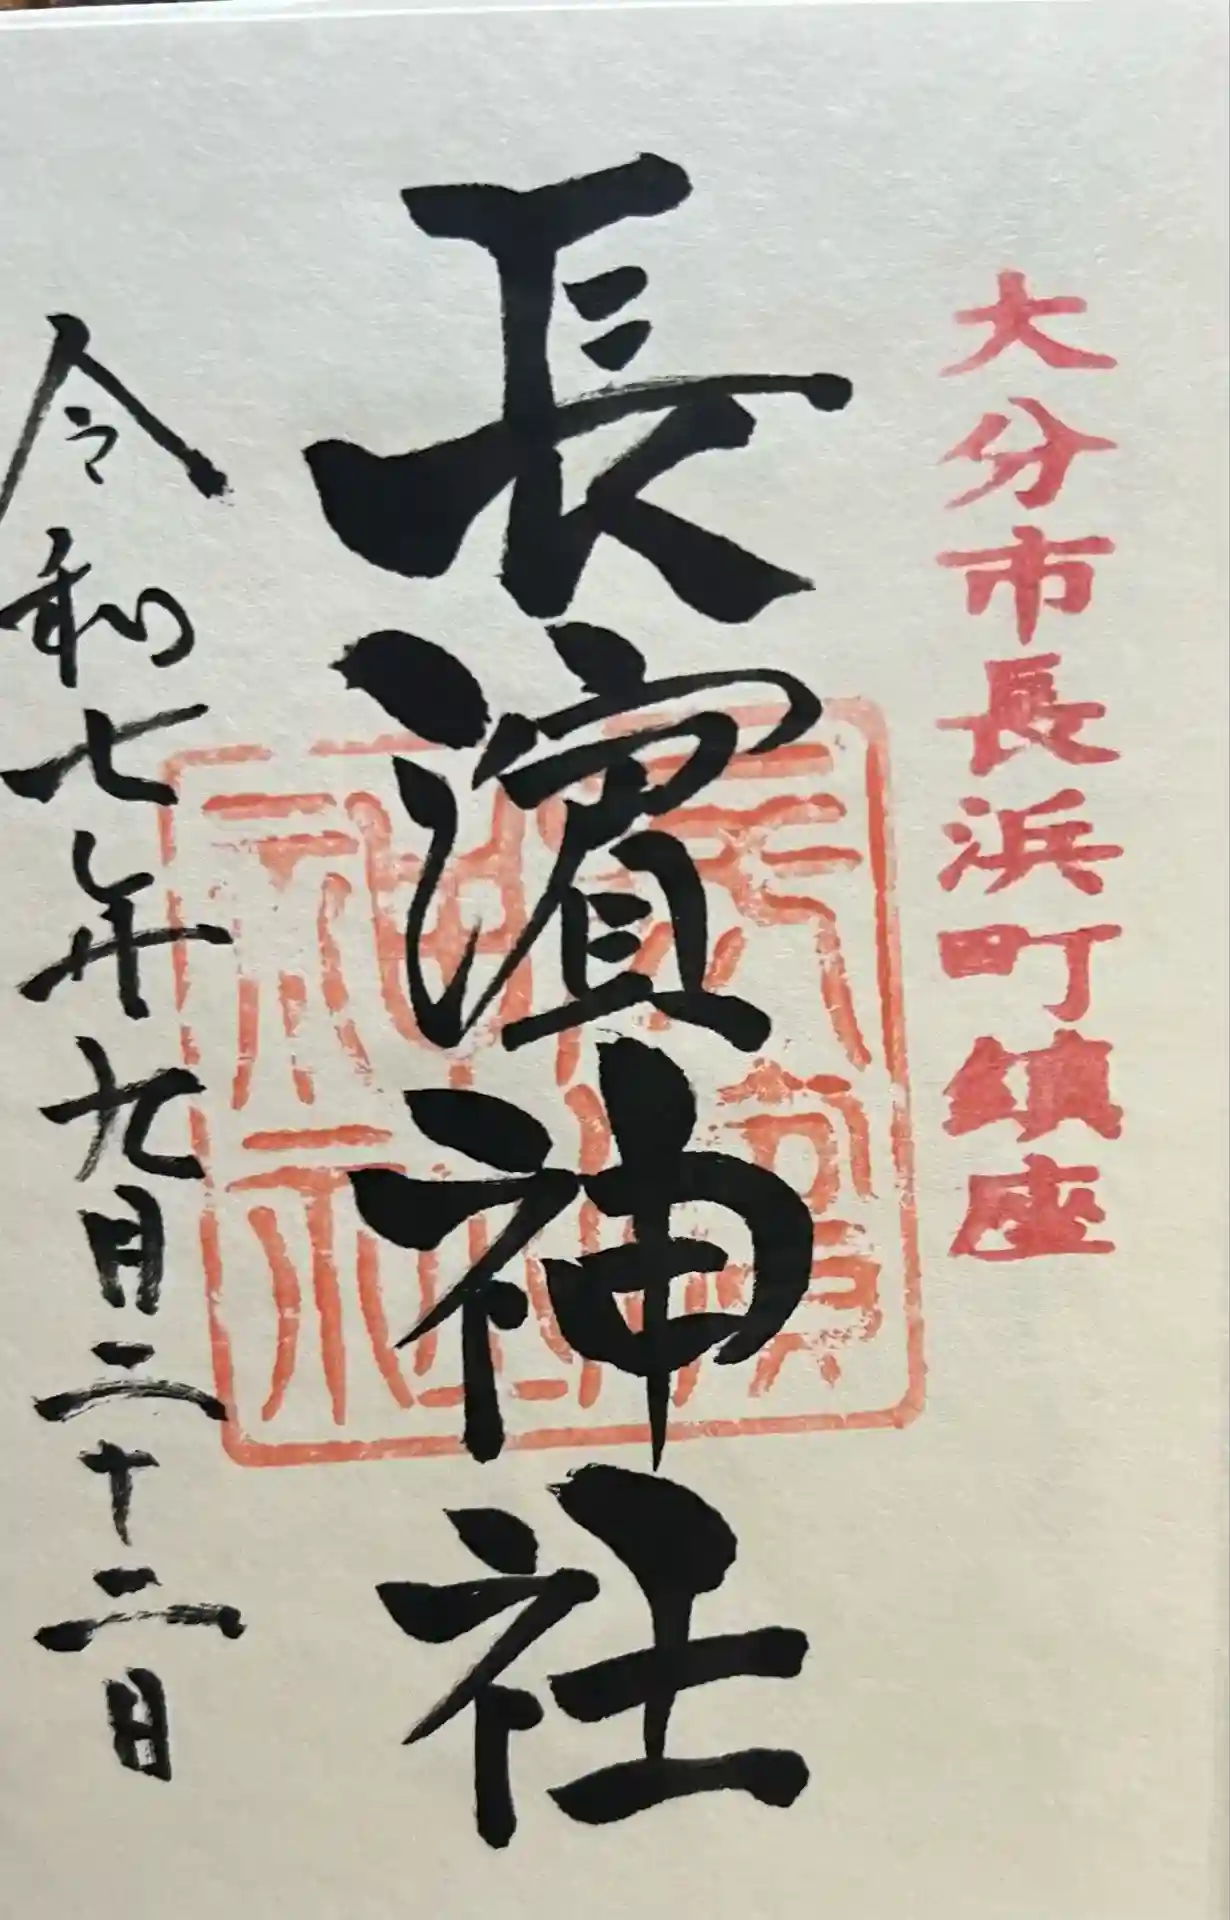 大分市長浜町鎮座
長濵神社
長濱神社
令和七年九月二十二日